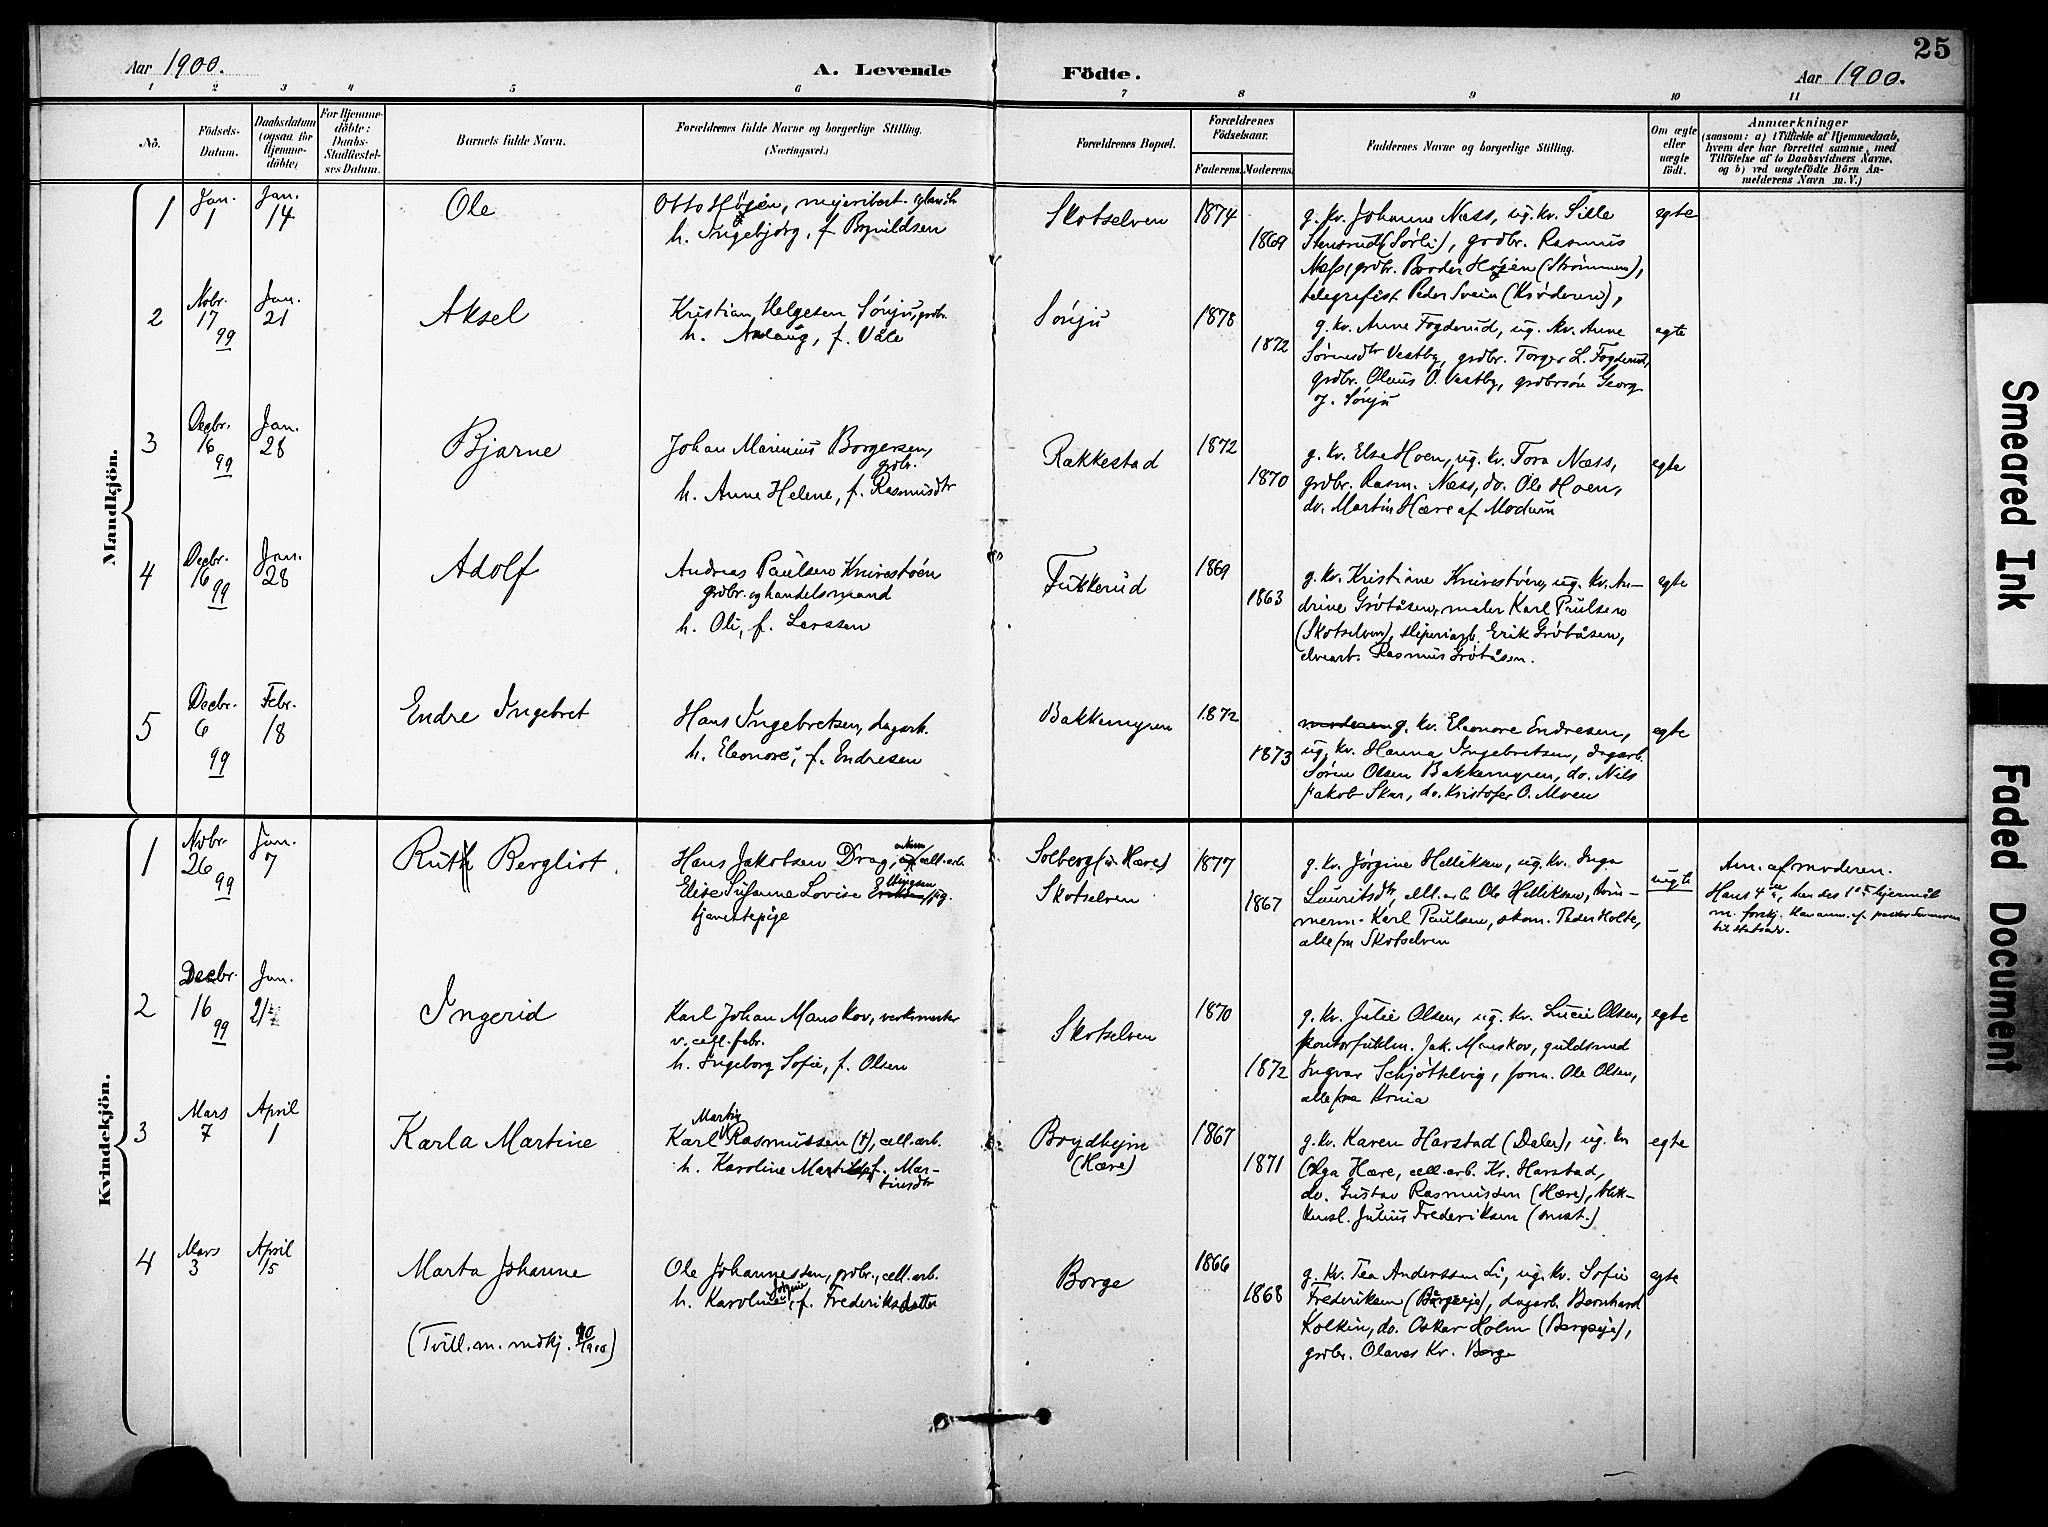 25
Aar 1900.
A. Levende
Födte.
Aar 1900.
1 2 3 4 5 6 7 8 9 10 11
No.
Födsels-
Datum.
Daabsdatum
(ogsaa for
Hjemme-
döbte)
For Hjemme-
döbte:
Daabs-
Stadfæstel-
ses Datum.
Barnets fulde Navn.
Forældrenes fulde Navne og borgerlige Stilling.
(Næringsvei.)
Forældrenes Bopæl.
Forældrenes
Födselsaar.
Faderens.
Moderens.
Faddernes Navne og borgerlige Stilling.
Om ægte
eller
uægte
født.
Anmærkninger
(saasom: a) i Tilfælde af Hjemmedaab,
hvem der har forrettet samme, med
Tilföielse af to Daabsvidners Navne.
og b) ved uægtefödte Börn An-
melderens Navn m. V.)
Mandkjön.
1
Jan.
1
Jan.
14
Ole
Otto Højen, mejeribest.
h. Ingebjørg, f. Brynildsen
Skotselven
1874
1869
g. kv. Johanne Næss, ug. kv. Sille
Stensrud (Sørli), grdbr. Rasmus
Næss, grdbr. Højen (Strømmen),
telegrafist Peder Svein (Krøderen),
egte
2
Nobr.
17
99
Jan.
21
Aksel
Kristian Helgesen Sønju, grdbr.
h. Aslaug, f. Våle
Sønju
1878
1872
g. kv. Anne Fogderud, ug. kv. Anne
Vestby, grdbr. Torger L. Fogderud,
grdbr. Olaus O. Vestby, grdbrsøn Georg
J. Sønju
egte
3
Decbr.
16
99
Jan.
28
Bjarne
Johan Marinius Borgersen,
grdbr.
h. Anne Helene, f. Rasmusdtr
Rakkestad
1872
1870
g. kv. Else Hoen, ug. kv. Tora Næss,
grdbr. Rasm. Næss, do. Ole Hoen,
do. Martin Hære af Modum
egte
4
Decbr.
16
99
Jan.
28
Adolf
Andreas Paulsen Knivestøen
grdbr. og handelsmand
h. Oli, f. Larssen
Fukkerud
1869
1863
g. kv. Kristiane Knivestøen, ug. kv. An-
drine Grøtåsen, maler Karl Paulsen
(Skotselven), sliperiarb. Erik Grøtåsen,
elvearb. Rasmus Grøtåsen.
egte
5
Decbr.
6
99
Febr.
18
Endre Ingebret
Hans Ingebretsen, dagarb.
h. Eleonore, f. Endresen
Bakkemyren
1872
1873
moderen g. kv. Eleonore Endresen,
ug. kv. Hanna Ingebretsen, dagarb.
Søren Olsen Bakkemyren, do. Nils
Jakob Skar, do. Kristofer O. Moen
egte
Kvindekjön.
1
Nobr.
26
99
Jan.
7
Rut Bergliot.
Hans Jakobsen Drag, cell. arb.
Elise Susanne Lovise Ellingsen
tjenestepige
Solberg (v. Hære)
Skotselven
1877
1867
g. kv. Jørgine Helliksen, ug. kv. Inga
Lauritsdtr, cell. arb. Ole Helliksen, tøm-
merm. Karl Paulsen, skom. Peder Holte,
alle fra Skotselven
uegte
Anm. af moderen.
Hans 4de, hendes 1ste lejermål
m. forskj.
2
Decbr.
16
99
Jan.
21
Ingerid
Karl Johan Manskov, verksmester
v. cell. fabr.
h. Ingeborg Sofie, f. Olsen
Skotselven
1870
1872
g. kv. Julie Olsen, ug. kv. Lucie Olsen,
kontorfuldm. Jak. Manskov, guldsmed
Ingvar Schjøttelvig, form. Ole Olsen,
alle fra Kr.nia
egte
3
Mars
7
April
1
Karla Martine
Martin
Karl Rasmussen (†), cell. arb.
h. Karoline f. Mar-
tinsdtr
Brydhejm
(Hære)
1867
1871
g. kv. Karen Harstad (Daler), ug. kv
Olga Hære, cell. arb. Kr. Harstad,
do. Gustav Rasmussen (Hære), blik-
kensl. Julius Frederiksen (smst.)
egte
4
Mars
3
April
15
Marta Johanne
Ole Johannessen, grdbr., cell. arb.
h. Karoline, f. Frederiksdatter
(Tvill. m. mdkj. 10/1900)
Borge
1866
1868
g. kv. Tea Anderssen Li, ug. kv. Sofie
Frederiksen (Borgeeje), dagarb. Bernhard
Kolkin, do. Oskar Holm (Borgeeje),
grdbr. Olaves Kr. Borge
egte
Smeared Ink
Faded Document